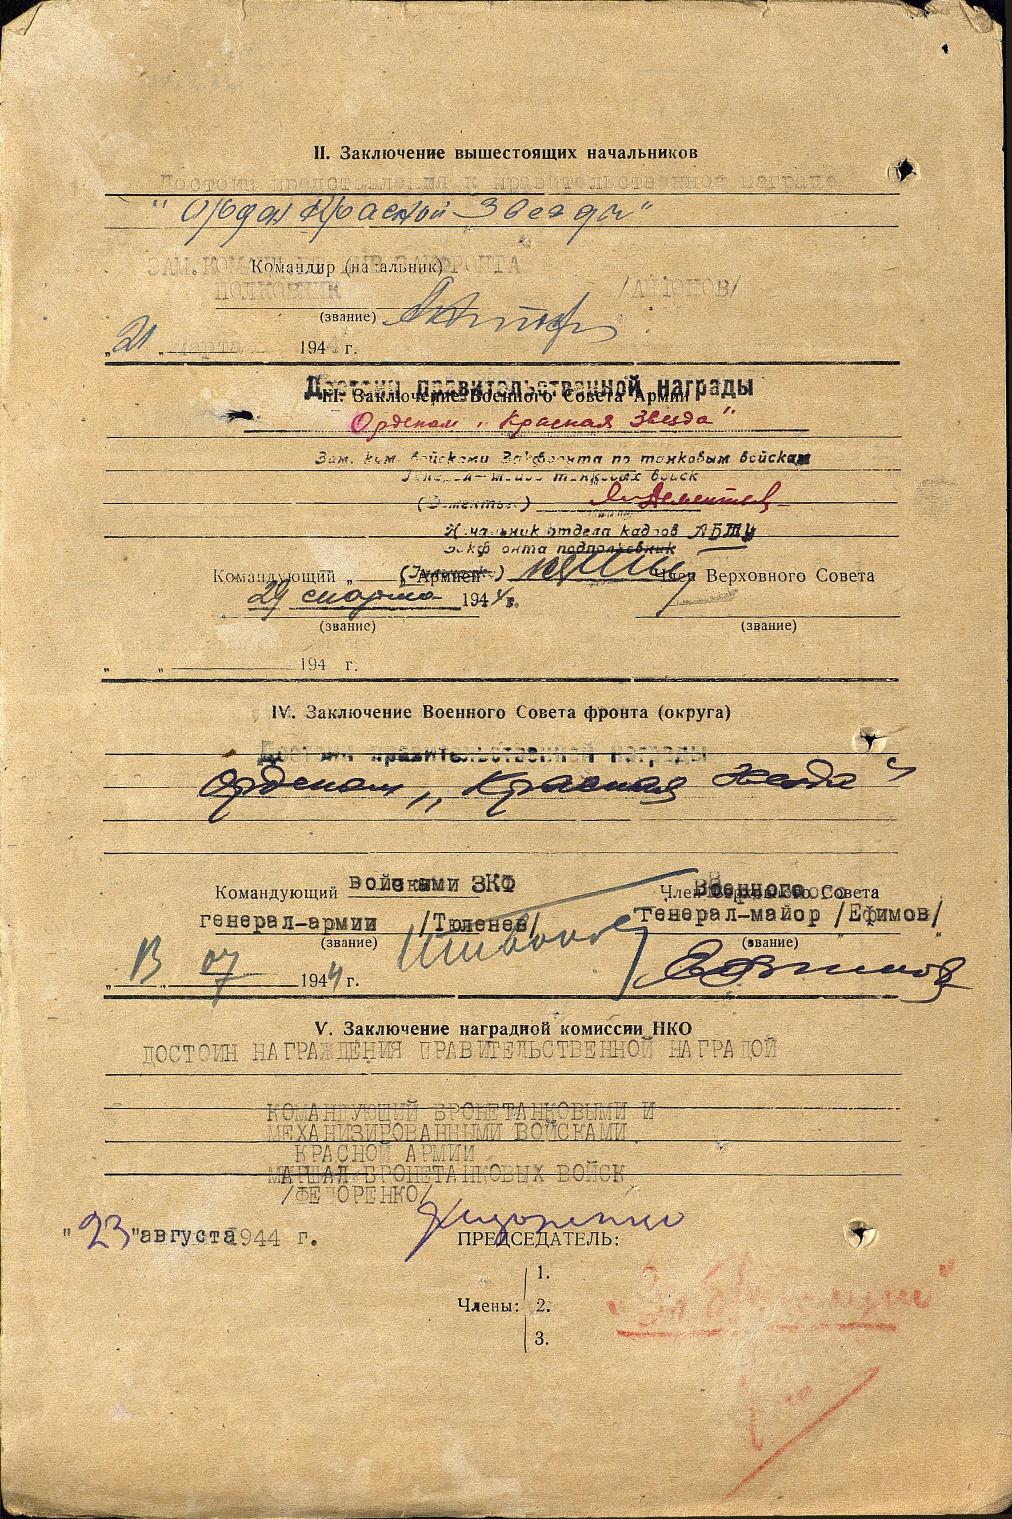 II. Заключение вышестоящих начальников
Достоин представления к правительственной награде
"Орден Красной Звезды"
ЗАМ.
Командир (начальник)
ПОЛКОВНИК /АНТОНОВ/
(звание)
„21„ марта 1944 г.
Достоин правительственной награды
III. Заключение Военного Совета Армии
Орденом „Красная Звезда"
Зам. ком. войсками Закфронта по танковым войскам
танковых войск
(Дементьев)
Начальник отдела кадров АБТУ
Закфронта подполковник
Командующий „ Армией Член Верховного Совета
29 марта 1944 г.
(звание) (звание)
„ „ 194 г.
IV. Заключение Военного Совета фронта (округа)
Достоин правительственной награды
Орденом „Красная Звезда"
Командующий войсками ЗКФ Член Военного Совета
генерал-армии /Тюленев/ генерал-майор /Ефимов/
(звание) (звание)
„13„ 07 1944 г.
V. Заключение наградной комиссии НКО
ДОСТОИН НАГРАЖДЕНИЯ ПРАВИТЕЛЬСТВЕННОЙ НАГРАДОЙ
КОМАНДУЮЩИЙ БРОНЕТАНКОВЫМИ И
МЕХАНИЗИРОВАННЫМИ ВОЙСКАМИ
КРАСНОЙ АРМИИ
МАРШАЛ БРОНЕТАНКОВЫХ ВОЙСК
/ФЕДОРЕНКО/
"23"августа 1944 г.
ПРЕДСЕДАТЕЛЬ:
1.
Члены: 2.
3.